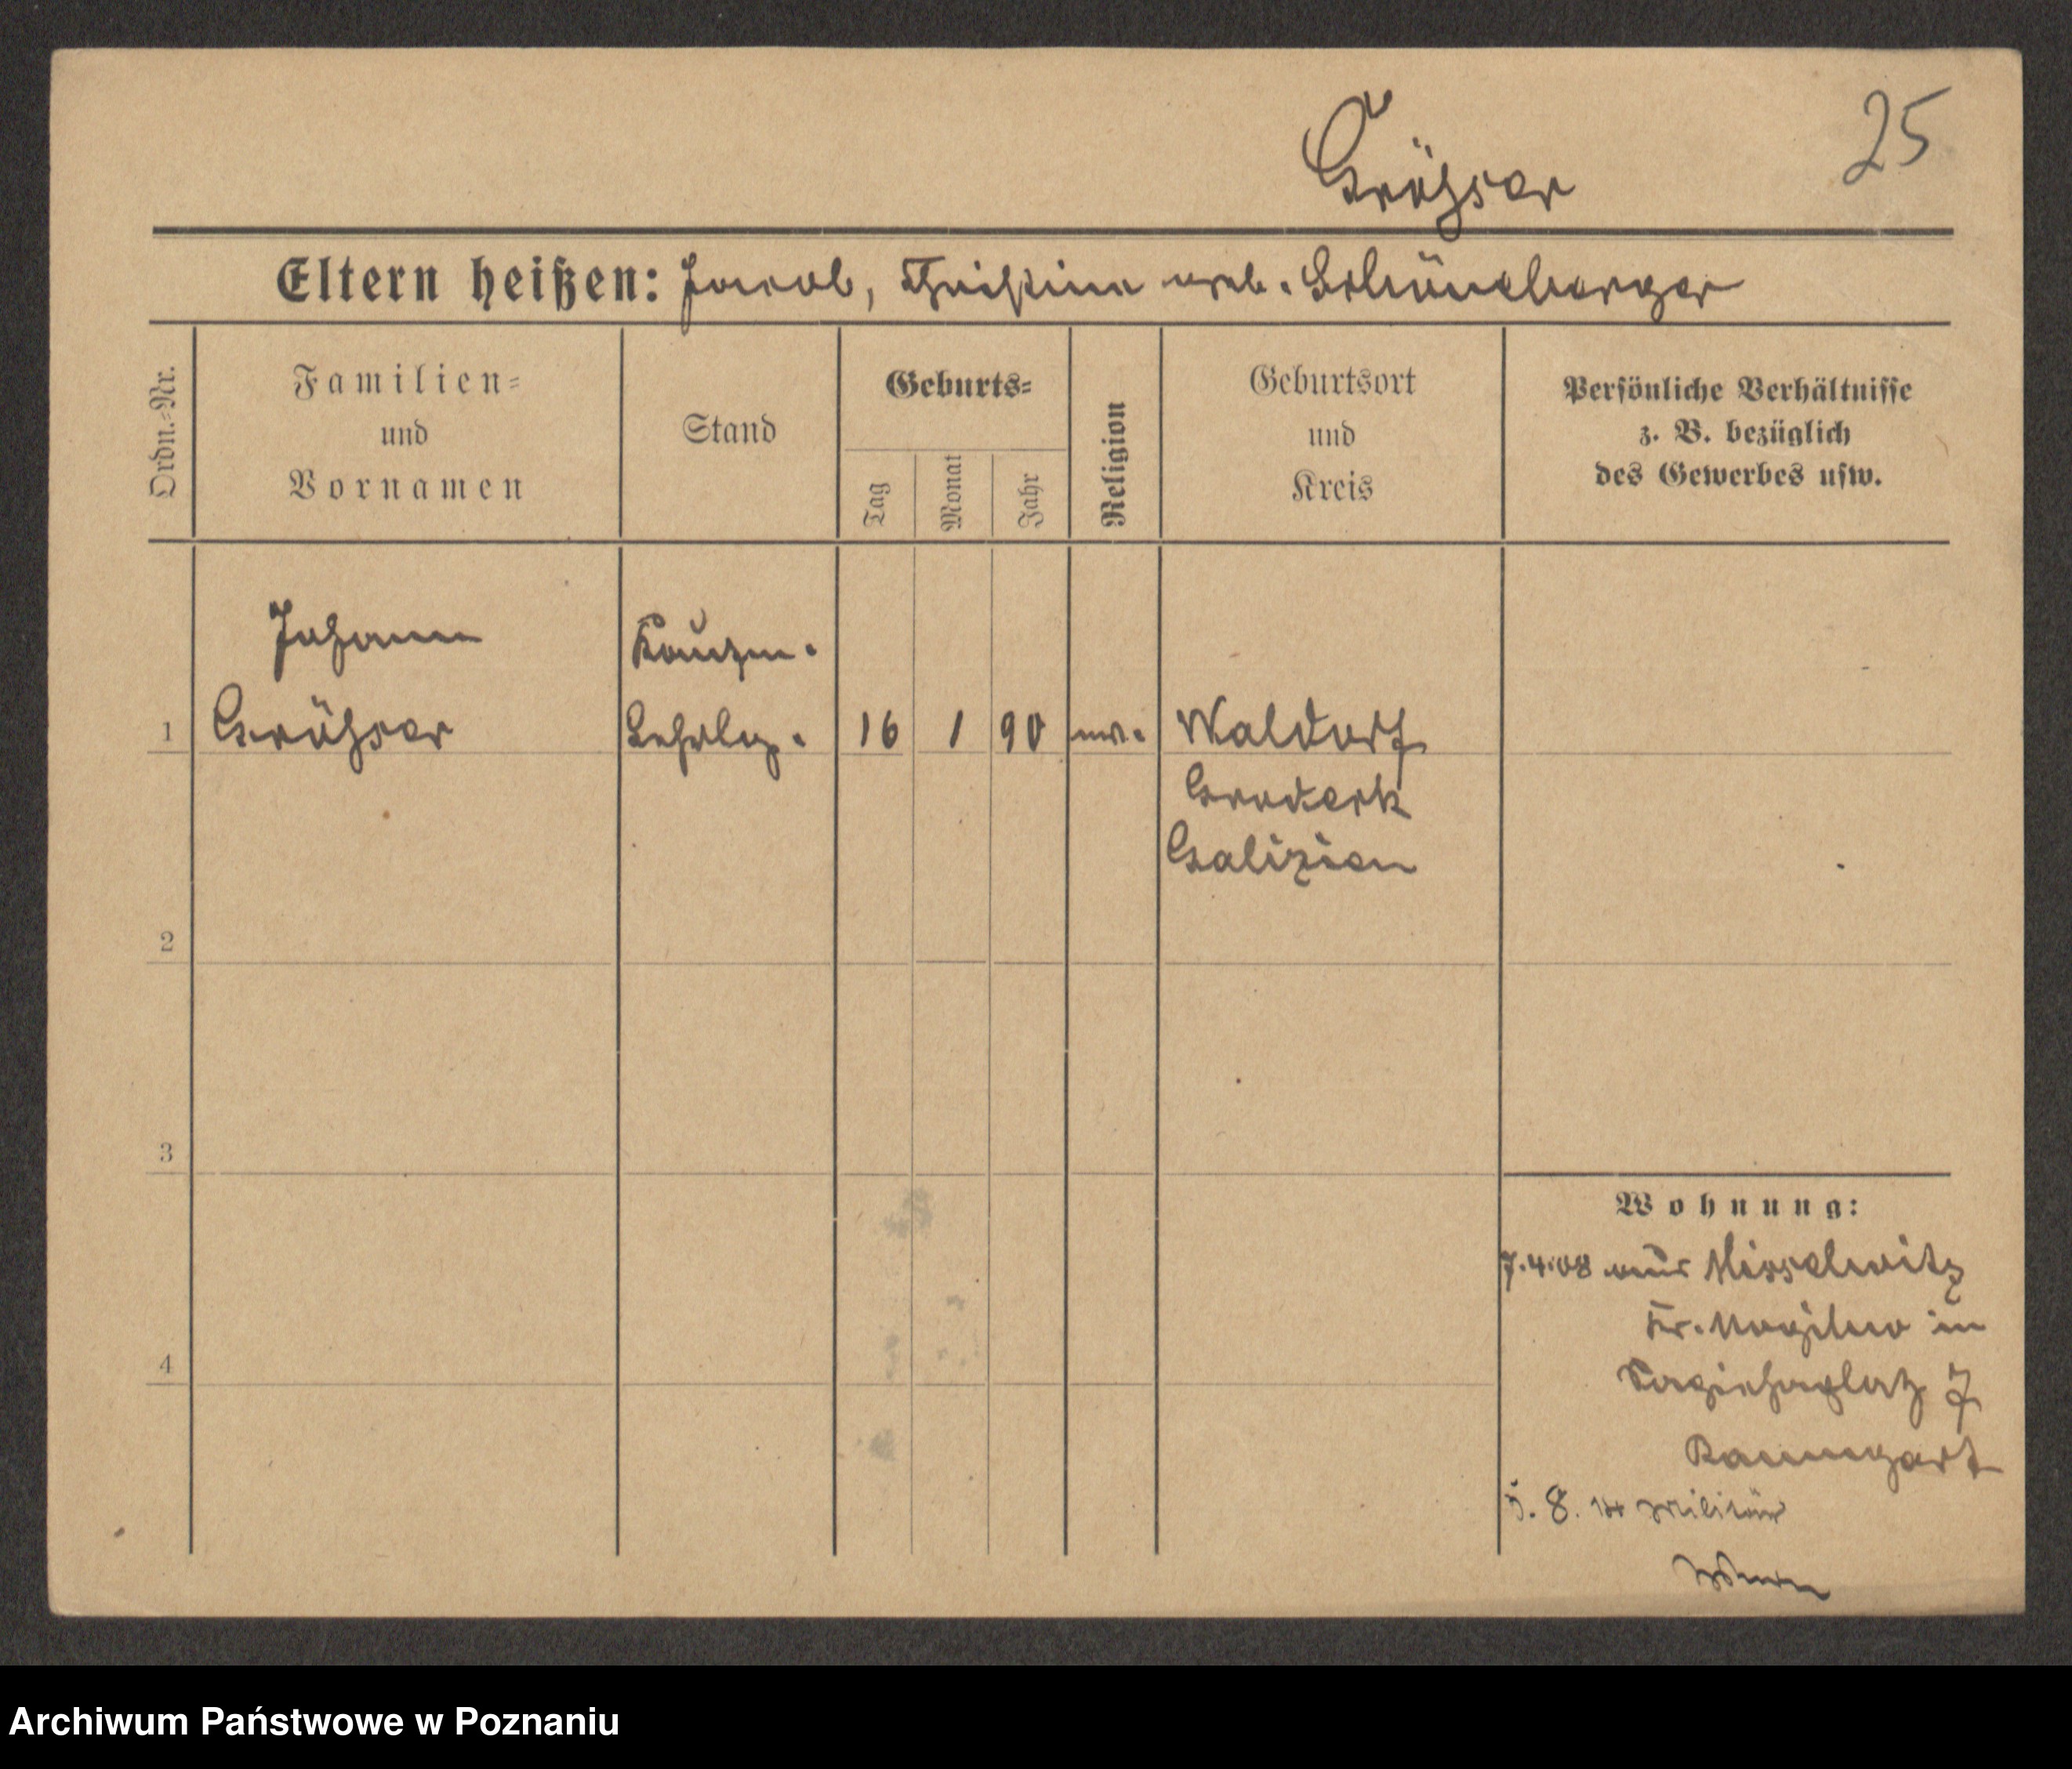 Gröhser
25
Eltern heißen: Jacob, Christine geb. Schöneberger
Ordn.-Nr.
Familien-
und
Vornamen
Stand
Geburts-
Tag
Monat
Jahr
Religion
Geburtsort
und
Kreis
Persönliche Verhältnisse
z. B. bezüglich
des Gewerbes usw.
Johann
Gröhser
1
Lehrlg.
16
1
90
Waldorf
Grodeck
Galizien
2
3
4
Wohnung:
7.4.08 aus
Kr. Mogilno in
Sapiehaplatz 7
Baumgart
5. 8. 14 Militär
Archiwum Państwowe w Poznaniu